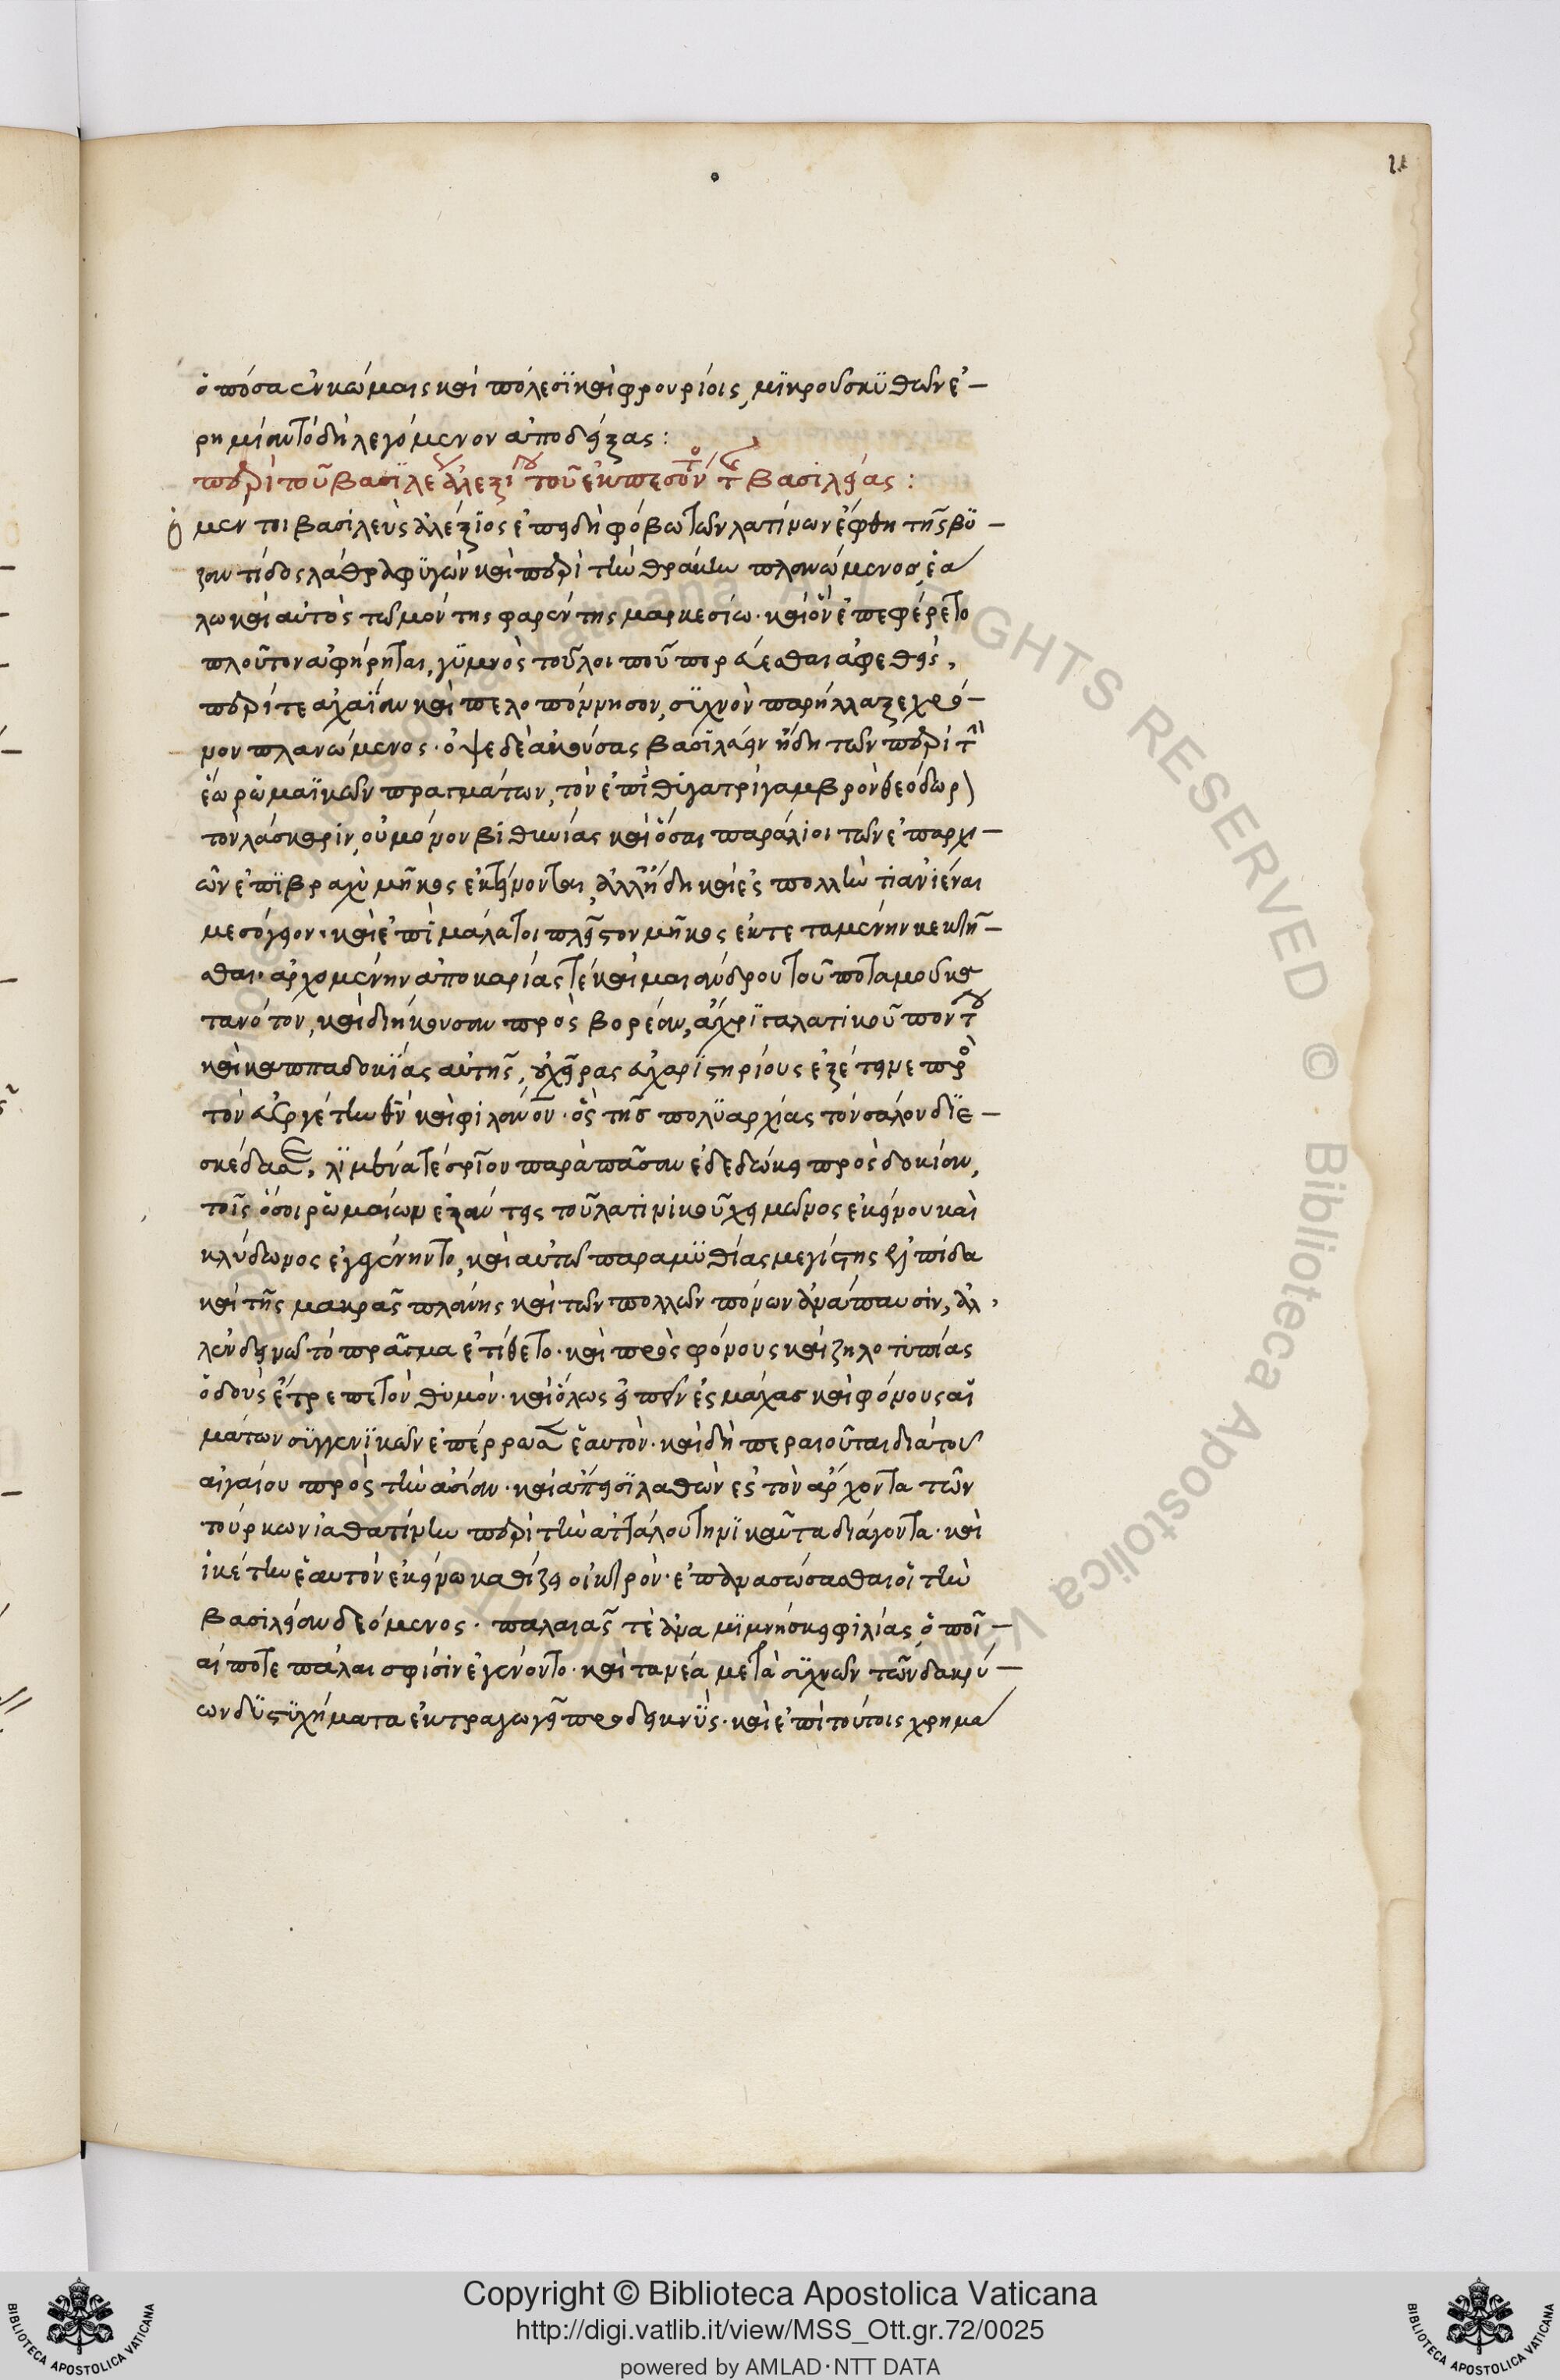 ὁπόσα ἐν κώμαις καὶ πόλεσϊ καὶ φρουρίοις, μϊκροῦ σκϋθῶν ἐ-
ρημίαν τὸ δὴ λεγόμενον ἀποδείξας:
περὶ τοῦ βασϊλέως ἀλεξίου τοῦ ἐκπεσόντος τῆς βασιλείας:
ὁ μέν τοι βασιλεὺς ἀλέξϊος ἐπειδὴ φόβω τῶν λατίνων ἔφθη τῆς βϋ-
ζαντίδος λάθρα φϋγὼν καὶ περὶ τὴν θράκην πλανώμενος, ἑά
λω καὶ αὐτὸς τῶ μόντης φαρέντης μαρκεσίω. καὶ ὃν ἐπεφέρετο
πλοῦτον ἀφήρηται, γϋμνὸς τοῦ λοιποῦ πορεύεσθαι ἀφεθεὶς,
περί τε ἀχαΐαν καὶ πελοπόννησον, σϋχνὸν παρήλλαξε χρό-
νον πλανώμενος. ὀψὲ δὲ ἀκούσας βασϊλεύειν ἤδη τῶν περὶ τὴν
ἕω ῥωμαϊκῶν πραγμάτων, τὸν ἐπὶ θυγατρὶ γαμβρὸν θεόδωρον
τὸν λάσκαριν, οὐ μόνον βιθυνίας καὶ ὅσαι παράλιοι τῶν ἐπαρχι-
ῶν ἐπϊ βραχὺ μῆκος ἐκτείνονται, ἀλλ' ἤδη καὶ ἐς πολλήν τιν' ἀνιέναι
μεσόγειον. καὶ ἐπὶ μάλά τοι πλεῖστον μῆκος ἐκτεταμένην κεκτῆ-
σθαι. ἀρχομένην ἀπὸ καρίας τὲ καὶ μαιάνδρου τοῦ ποταμοῦ κα
τὰ νότον, καὶ διήκουσαν πρὸς βορέαν, ἄχρϊ γαλατικοῦ πόντου
καὶ καππαδοκϊας αὐτῆς, οὐ χεῖρας εὐχαρϊστηρίους ἐξέτεινε πρὸς
τὸν εὐεργέτην θν καὶ φιλάνον. ὃς τῆς πολϋαρχίας τὸν σάλον δϊε-
σκέδασε, λϊμένα τε ὅρμϊον παρὰ πᾶσαν ἐδεδώκει προσδοκίαν,
τοῖς ὅσοι ῥωμαίων ἐξάντεις τοῦ λατινικοῦ χειμῶνος ἐκείνου καὶ
κλύδωνος ἐγεγένηντο, καὶ αὐτῶ παραμϋθίας μεγίστης ἐλπίδα
καὶ τῆς μακρᾶς πλάνης καὶ τῶν πολλῶν πόνων ἀνάπαυσιν, ἀλ
λ' ἐν δεινῶ τὸ πρᾶγμα ἐτίθετο. καὶ πρὸς φόνους καὶ ζηλοτυπίας
ὁδοὺς ἔτρεπε τὸν θυμόν. καὶ ὅλως εἰπεῖν ἐς μάχας καὶ φόνους αἱ
μάτων σϋγγενϊκῶν ἐπέρρωσεν ἑαυτόν. καὶ δὴ περαιοῦται διὰ τοῦ
αἰγαίου πρὸς τὴν ἀσίαν. καὶ ἄπεισϊ λαθὼν ἐς τὸν ἄρχοντα τῶν
τούρκων ἰαθατίνην περὶ τὴν ἀττάλου τηνϊκαῦτα διάγοντα. καὶ
ἱκέτην ἑαυτὸν ἐκείνω καθίζει οἰκτρόν. ἐπανασώσασθαί οἱ τὴν
βασιλείαν δεόμενος. παλαιᾶς τὲ ἀναμϊμνήσκει φιλίας, ὁποῖ-
αί ποτε πάλαι σφίσιν ἐγένοντο. καὶ τὰ νέα μετὰ σϋχνῶν τῶν δακρύ-
ων δϋστϋχήματα ἐκτραγωγεῖ προσδεικνϋς. καὶ ἐπὶ τούτοις χρημά
Copyright © Biblioteca Apostolica Vaticana
http://digi.vatlib.it/view/MSS_Ott.gr.72/0025
powered by AMLAD·NTT DATA